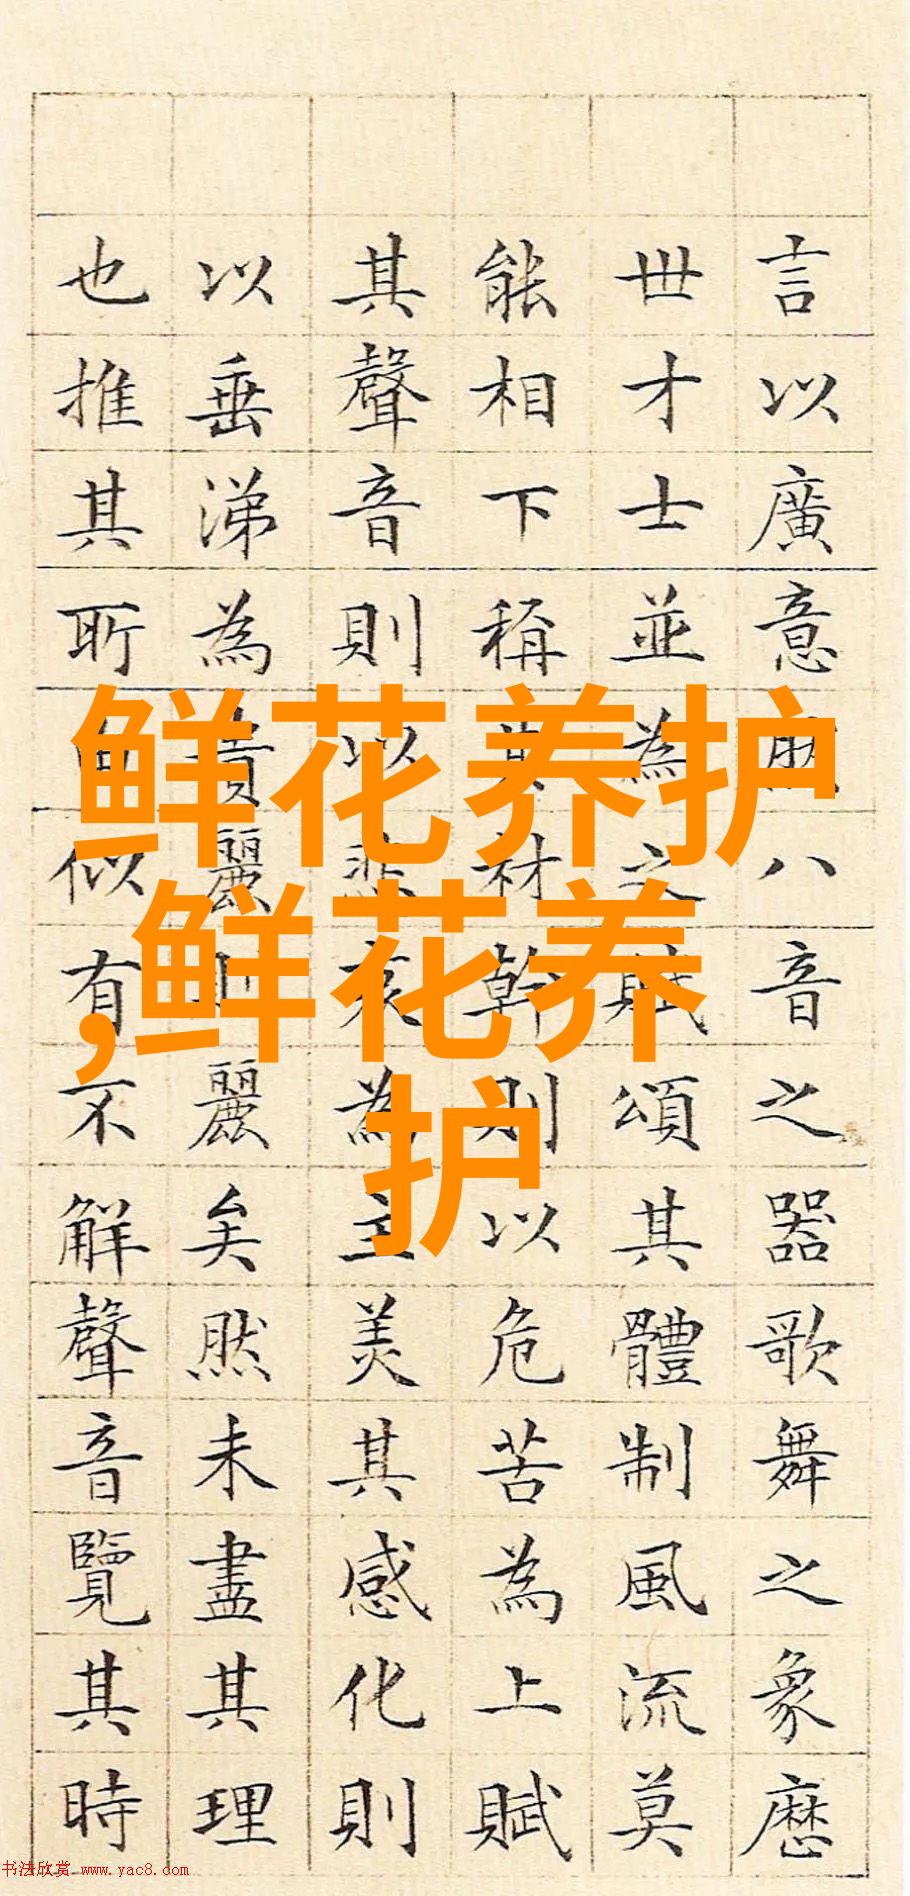 言以廣意八音之器歌舞之象歷
世才士並為之賦頌其體制風流莫
能相下稱其材幹則以危苦為上賦
其聲音則以悲哀為主美其感化則
以垂涕為貴麗麗矣然未盡其理
也推其所由似有不解聲音覽其時
鲜花养护
,鲜花养
护
书法欣赏 www.yac8.com